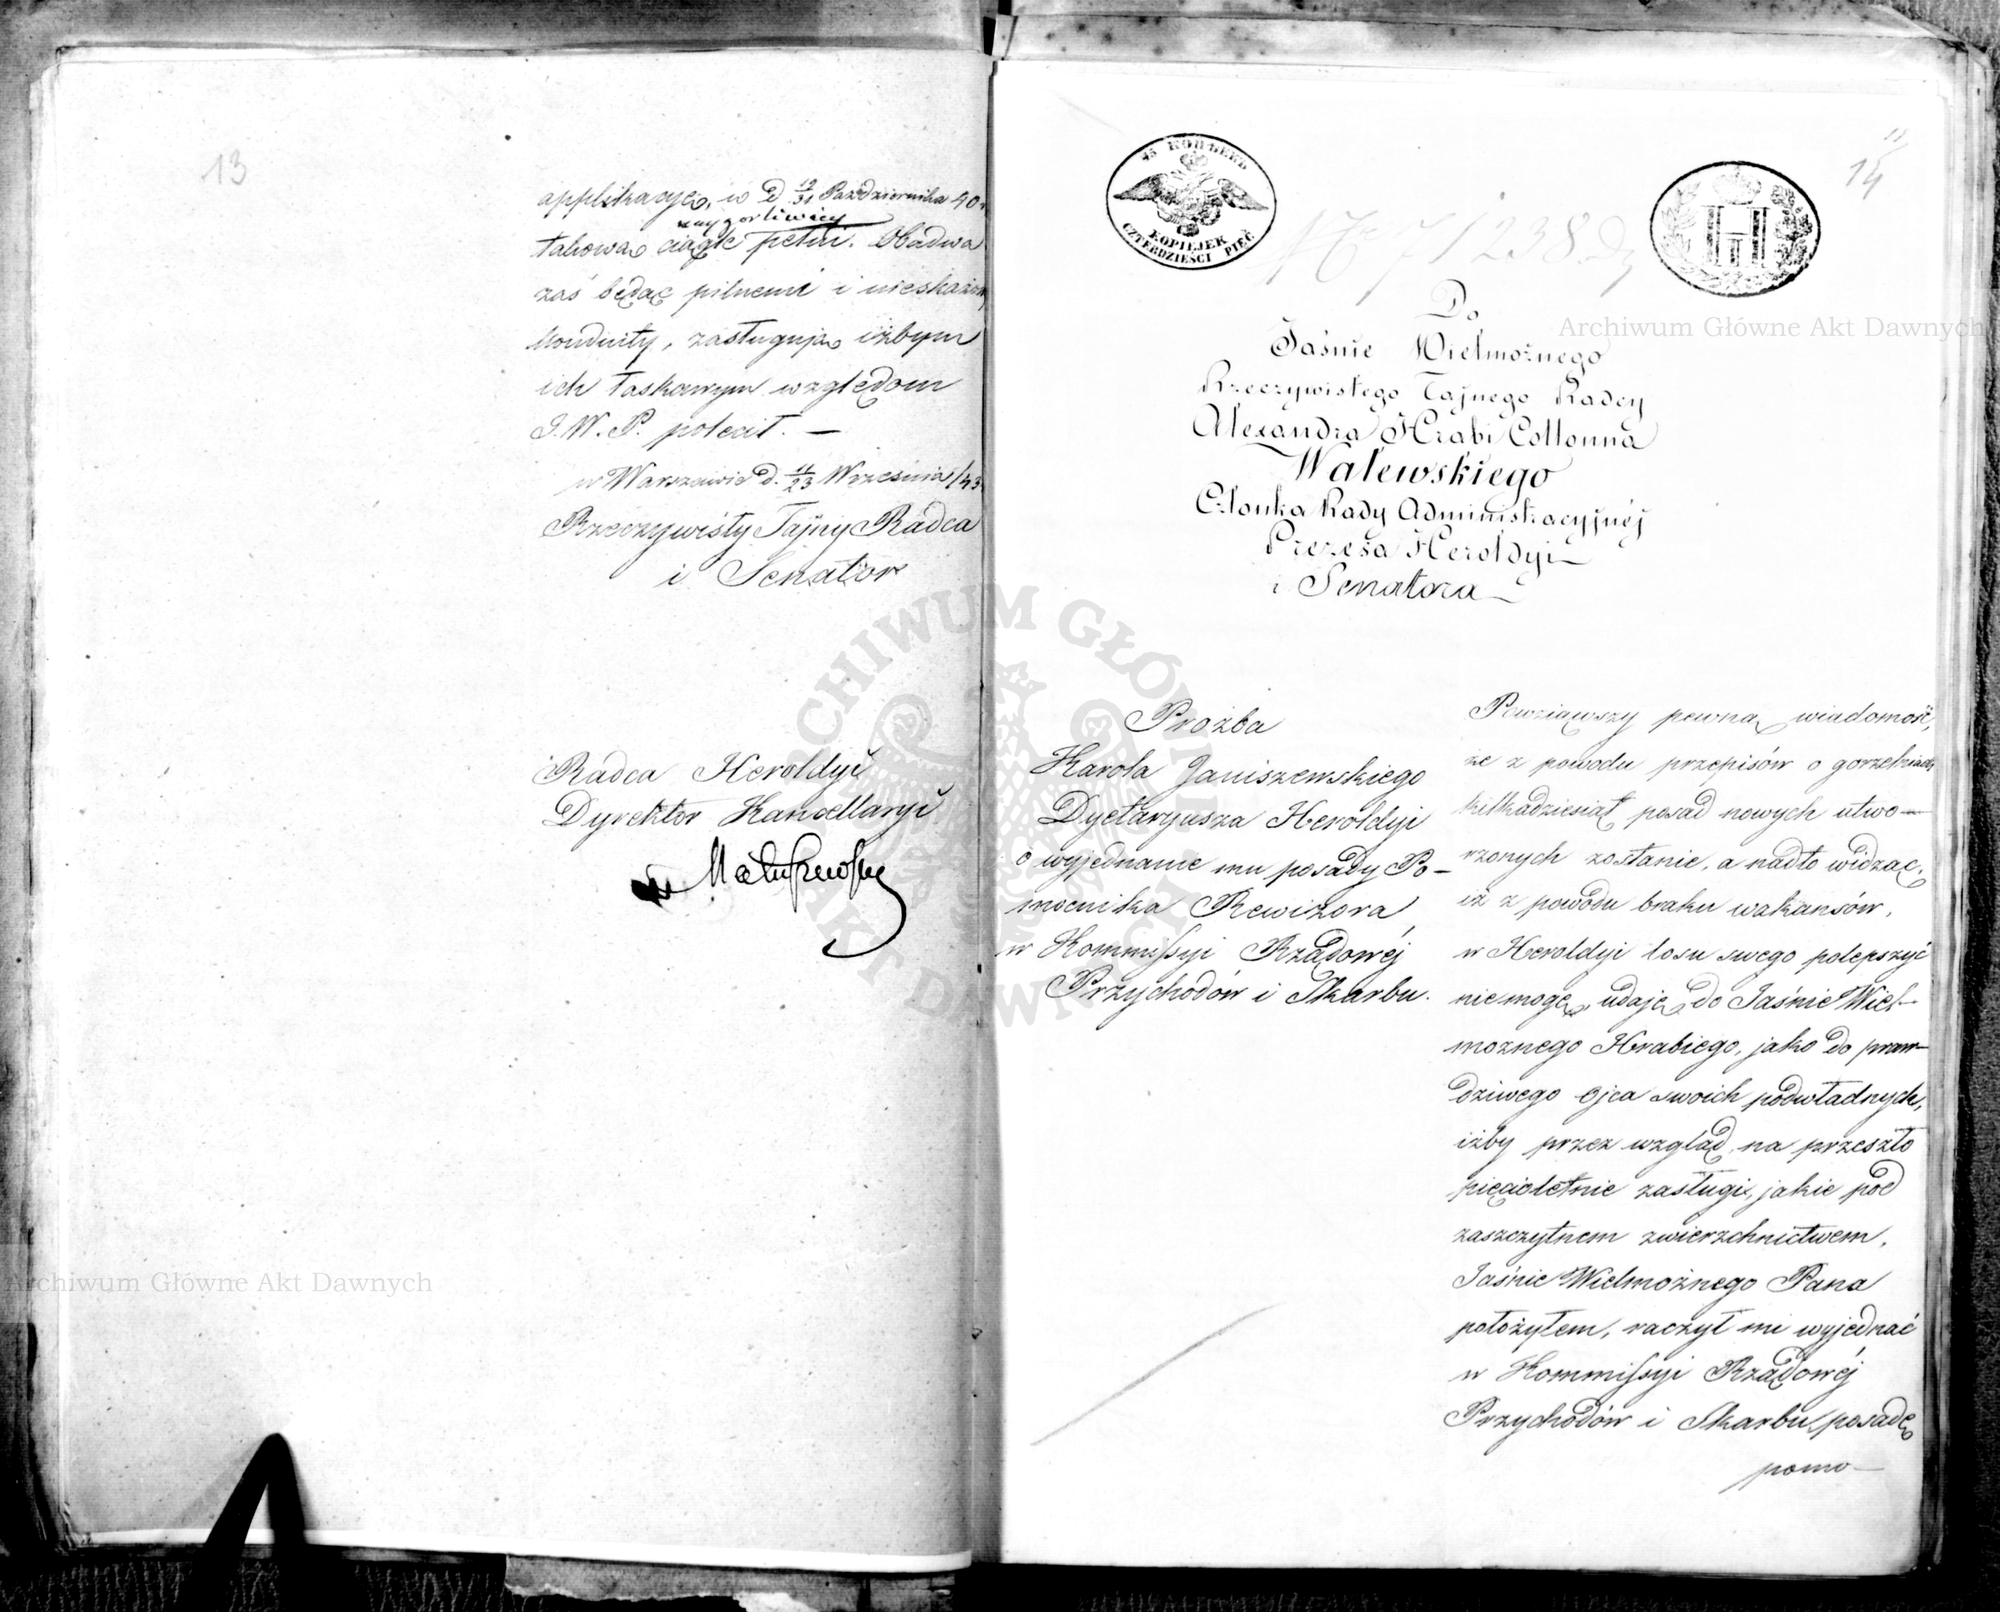 13
applikacyę, w d 19/31 Października 40 r
najgorliwiéj
takową ciągle pełni. Obadwa
zaś będąc pilnemi i nieskażon
konduity, zasługują iżbym
ich łaskawym względom
J. W. P. polecił. —
w Warszawie d. 11/23 Września /43
Rzeczywisty Tajny Radca
i Senator
Radca Heroldyi
Dyrektor Kancellaryi
11
14
45 КОПѢЕКЪ
KOPIEJEK
CZTERDZIEŚCI PIĘĆ
N 7/238
Do
Jaśnie Wielmożnego
Rzeczywistego Tajnego Radcy
Alexandra Hrabi Collonna
Walewskiego
Członka Rady Administracyjnéj
Prezesa Heroldyi
i Senatora
Prożba
Karola Janiszewskiego
Dyetaryusza Heroldyi
o wyjednanie mu posady Po-
mocnika Rewizora
w Kommissyi Rządowéj
Przychodów i Skarbu.
Powziąwszy pewną wiadomość,
że z powodu przepisów o gorzelniach
kilkadziesiąt posad nowych utwo-
rzonych zostanie, a nadto widząc,
iż z powodu braku wakansów,
w Heroldyi losu swego polepszyć
nie mogę, udaję do Jaśnie Wiel-
możnego Hrabiego, jako do praw-
dziwego ojca swoich podwładnych,
iżby przez wzgląd, na przeszło
pięcioletnie zasługi, jakie pod
zaszczytnem zwierzchnictwem,
Jaśnie Wielmożnego Pana
położyłem, raczył mi wyjednać
w Kommissyi Rządowéj
Przychodów i Skarbu posadę
pomo-
Archiwum Główne Akt Dawnych
Archiwum Główne Akt Dawnych
ARCHIWUM GŁÓWNE AKT DAWNYCH